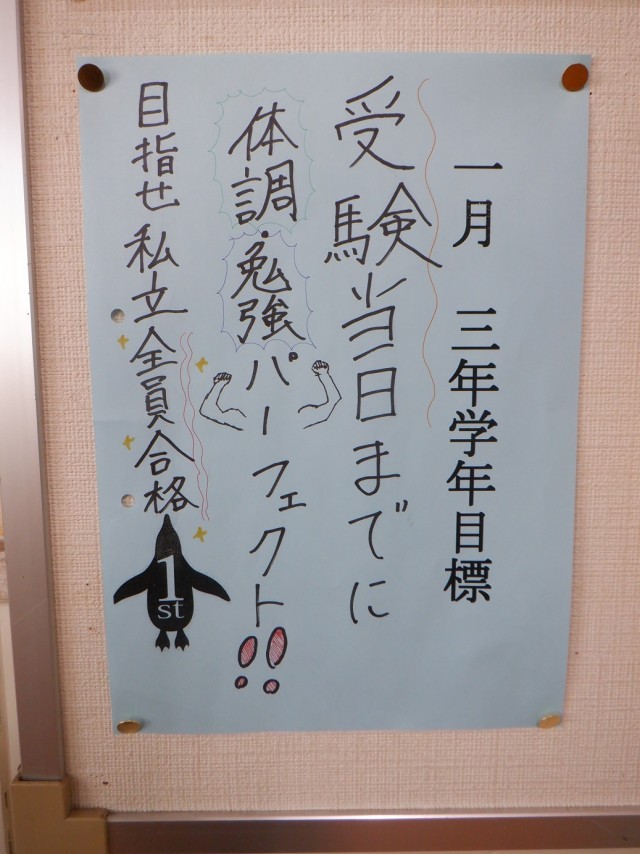 一月 三年学年目標
受験当日までに
体調・勉強パーフェクト!!
目指せ 私立全員合格
1st